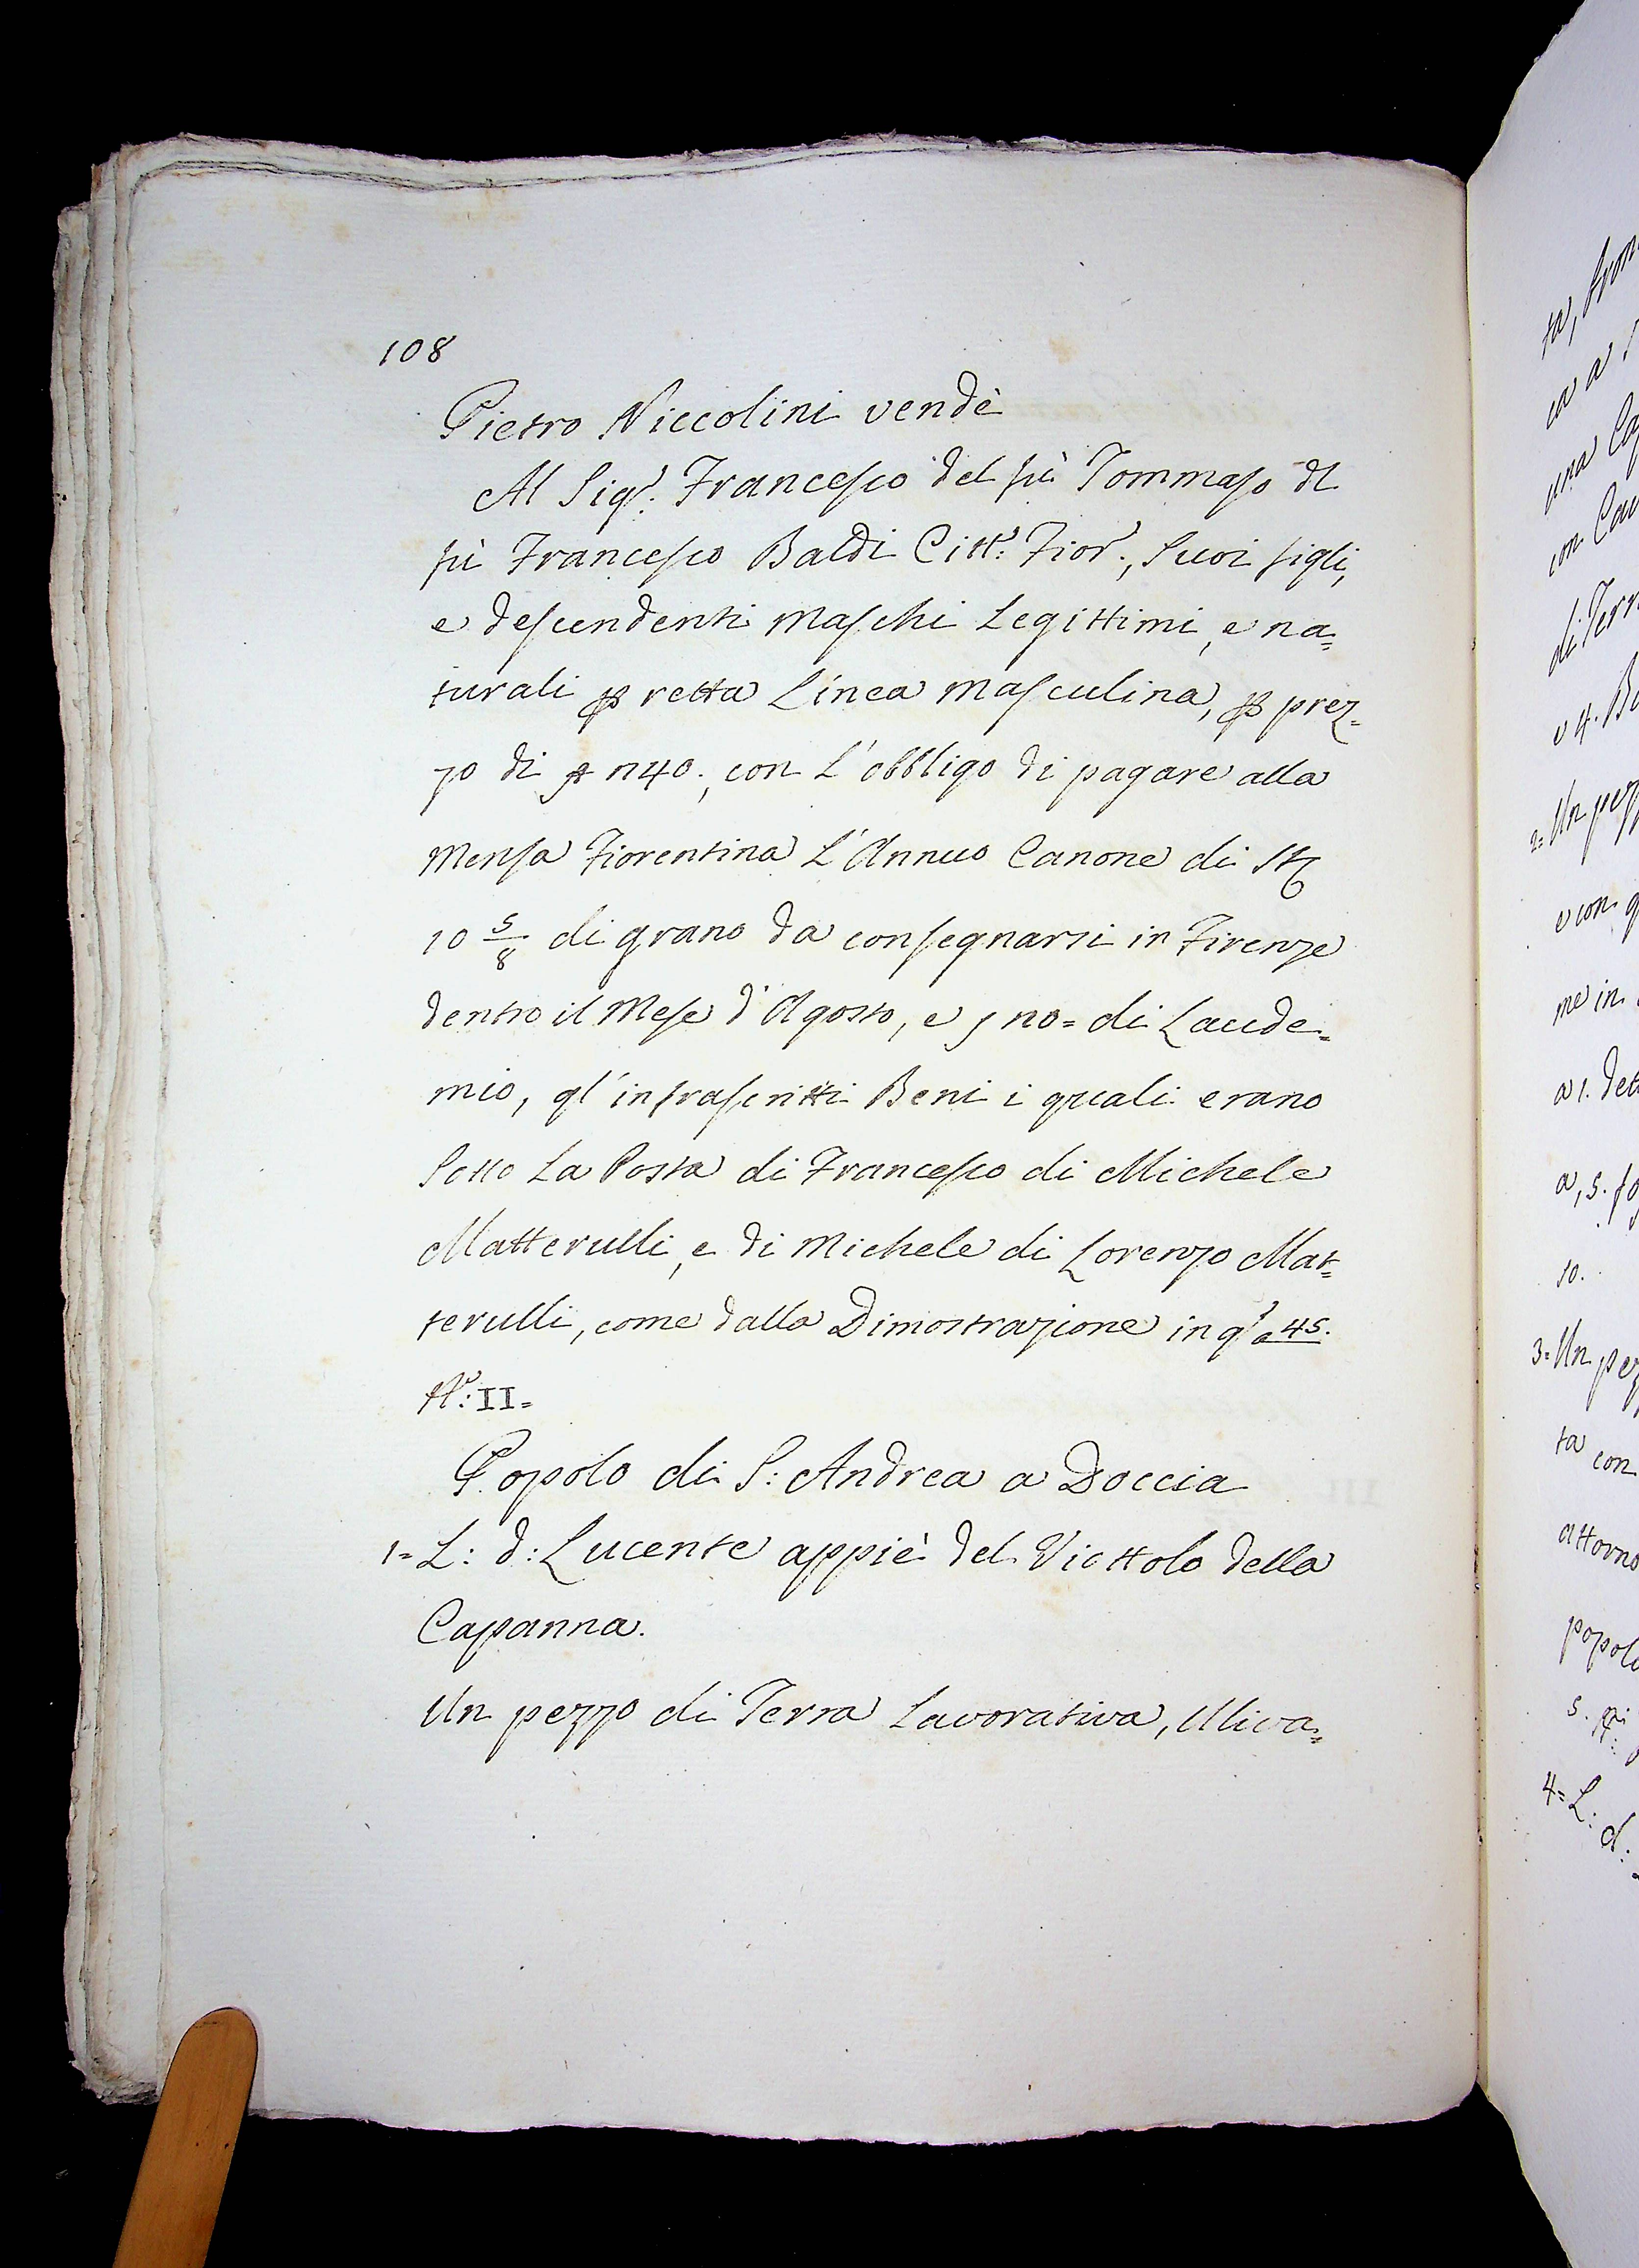 108
Pietro Niccolini vendè
Al Sigr. Francesco del fù Tommaso dl
fù Francesco Baldi Citt: Fior., Suoi figli,
e descendenti Maschi Legittimi, e na=
turali retta Linea Masculina, prez=
zo di n40., con L'obbligo di pagare alla
Mensa Fiorentina L'Annuo Canone di St
10 5/8 di grano da consegnarsi in Firenze
dentro il Mese d'Agosto, e no= di Laude=
mio, gl'infrascritti Beni i quali erano
Sotto La Posta di Francesco di Michele
Matterulli, e di Michele di Lorenzo Mat=
terulli, come dalla Dimostrazione in q° a 45.
N°: II=
Popolo di S: Andrea a Doccia
1= L: d: Lucente appiè del Viottolo della
Capanna.
Un pezzo di Terra Lavorativa, Uliva=
ca a
una
con
di Terr
2= Un pez
e con
me in
a 1. det
a, 5.
10.
3= Un pez
ta con
attorno
popolo
5.
4= L: d: